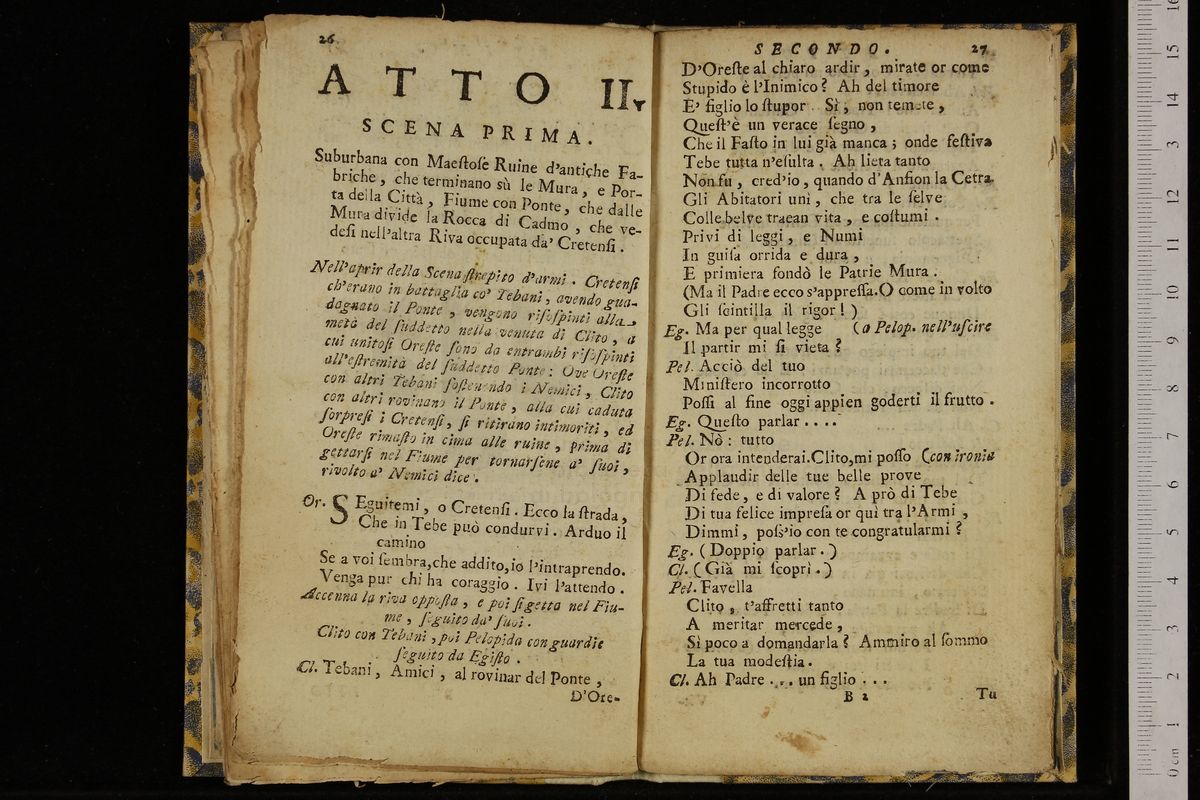 26
ATTO II.
SCENA PRIMA.
Suburbana con Maeſtoſe Ruine d'antiche Fa-
briche, che terminano sù le Mura, e Por-
ta della Città, Fiume con Ponte, che dalle
Mura divide la Rocca di Cadmo, che ve-
deſi nell'altra Riva occupata da' Cretenſi.
Nell'aprir della Scena ſtrepito d'armi. Cretenſi
ch'erano in battaglia co' Tebani, avendo gua-
dagnato il Ponte, vengono riſoſpinti alla
metà del ſuddetto nella venuta di Clito, a
cui unitoſi Oreſte ſono da entrambi riſoſpinti
all'eſtremità del ſuddetto Ponte: Ove Oreſte
con altri Tebani ſoſtenendo i Nemici, Clito
con altri rovinano il Ponte, alla cui caduta
ſorpreſi i Cretenſi, ſi ritirano intimoriti, ed
Oreſte rimaſto in cima alle ruine, prima di
gettarſi nel Fiume per tornarſene a' ſuoi,
rivolto a' Nemici dice.
Or. SEguitemi, o Cretenſi. Ecco la ſtrada,
Che in Tebe può condurvi. Arduo il
camino
Se a voi ſembra, che addito, io l'intraprendo.
Venga pur chi ha coraggio. Ivi l'attendo.
Accenna la riva oppoſta, e poi ſi getta nel Fiu-
me, ſeguito da' ſuoi.
Clito con Tebani, poi Pelopida con guardie
ſeguito da Egiſto.
Cl. Tebani, Amici, al rovinar del Ponte,
D'Ore-
SECONDO. 27
D'Oreſte al chiaro ardir, mirate or come
Stupido è l'Inimico? Ah del timore
E' figlio lo ſtupor. Sì, non temete,
Queſt'è un verace ſegno,
Che il Faſto in lui già manca; onde feſtiva
Tebe tutta n'eſulta. Ah lieta tanto
Non fu, cred'io, quando d'Anfion la Cetra
Gli Abitatori unì, che tra le ſelve
Colle belve traean vita, e coſtumi.
Privi di leggi, e Numi
In guiſa orrida e dura,
E primiera fondò le Patrie Mura.
(Ma il Padre ecco s'appreſſa. O come in volto
Gli ſcintilla il rigor!)
Eg. Ma per qual legge (a Pelop. nell'uſcire
Il partir mi ſi vieta?
Pel. Acciò del tuo
Miniſtero incorrotto
Poſſi al fine oggi appien goderti il frutto.
Eg. Queſto parlar....
Pel. Nò: tutto
Or ora intenderai. Clito, mi poſſo (con ironia
Applaudir delle tue belle prove
Di fede, e di valore? A prò di Tebe
Di tua felice impreſa or quì tra l'Armi,
Dimmi, poſs'io con te congratularmi?
Eg. (Doppio parlar.)
Cl. (Già mi ſcoprì.)
Pel. Favella
Clito, t'affretti tanto
A meritar mercede,
Sì poco a domandarla? Ammiro al ſommo
La tua modeſtia.
Cl. Ah Padre ... un figlio ...
B 2
Tu